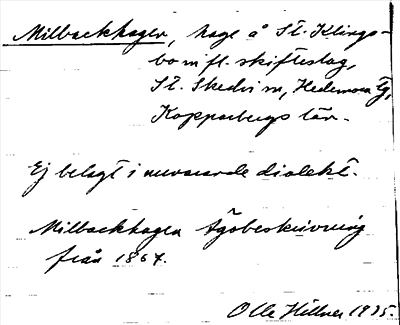 Milbackhagen, hage å St. Klings-
bo m fl. skifteslag,
St. Skedvi sn, Hedemora tg,
Kopparbergs län.
Ej belagt i nuvarande dialekt.
Milbackhagen Ägobeskrivning
från 1867.
Olle Hillner 1935.